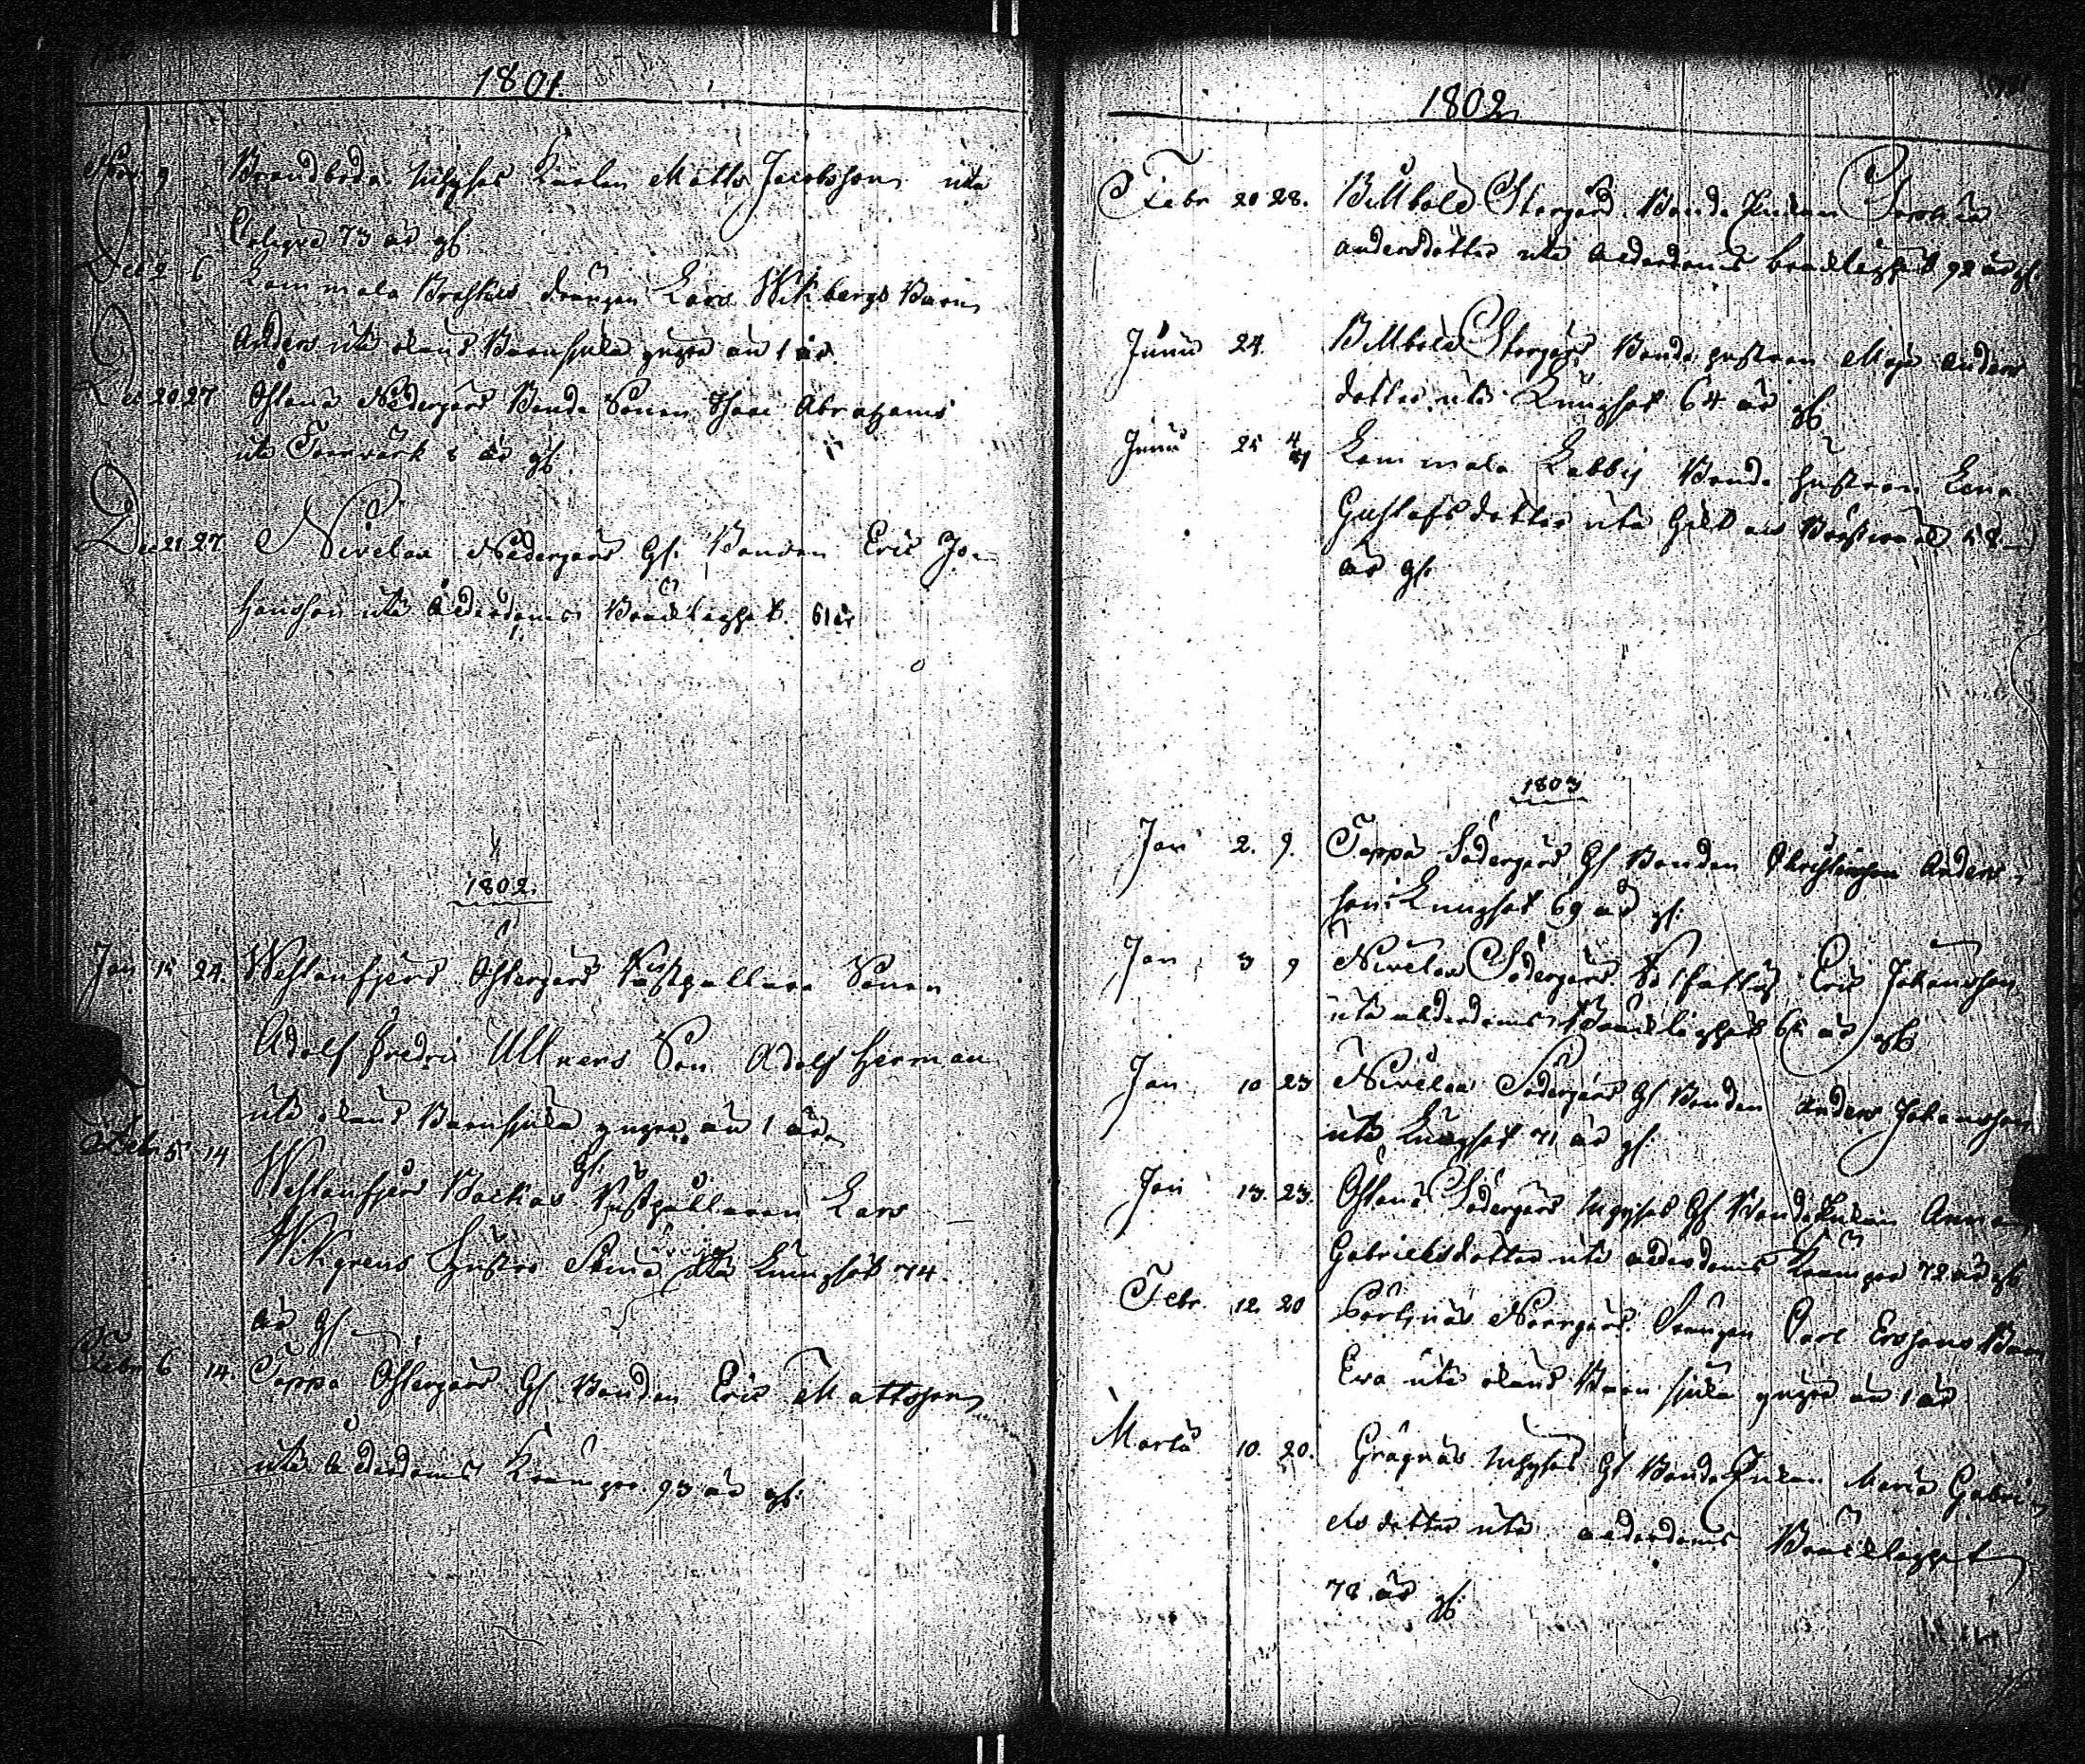 1801.
Nov. 9 Brandboda Inhyses Karlen Matts Jacobsson uti
73 år gl.
Dec 2 6 Lammala drängen Lars Wikbergs Barn
Anders uti okänd Barnsjuka yngre än 1 år.
Dec 20 27 Öslanä Nedergård Bonde Sonen Isaac Abrahams
uti år gl.
Dec 21 27 Nivelax Nedergård Gl. Bonden Eric Jo-
hansson uti Ålderdoms Bräcklighet. 61 år
1802.
Jan 15 24 Westanfjerd Östergård Sonen
Adolf Fredric Ullners Son Adolf Herman
uti okänd Barnsjuka yngre än 1 år
Febr 5 14 Westanfjerd Backas Gl. Lars
Wikgrens Hustru uti Lungsot 74
år gl
Febr 6 14. Tappo Östergård Gl. Bonden Eric Mattsson
uti Ålderdoms Krämpor 93 år gl:
1802
Febr 20 28. Billböle Storgård Bonde Enkan
Andersdotter uti Ålderdoms bräcklighet 92 år gl
Junii 24. Billböle Storgård Bonde hustrun Maja Anders
dotter uti Lungsot 64 år gl.
Junii 25 Lammala Labbis Bonde hustrun Lena
Gustafsdotter uti 58
år gl.
1803
Jan 2. 9. Tappo Södergård Gl Bonden Christianson Anders
son Lungsot 69 år gl:
Jan 3 9 Nivelax Södergård Eric Johansson
uti ålderdoms Bräcklighet år gl
Jan 10 23 Nivelax Södergård Gl Bonden Anders Johansson
uti Lungsot 71 år gl.
Jan 13. 23. Öslanä Södergård Inhyses Gl Bonde Enkan Anna
Gabrielsdotter uti ålderdoms Krämpor 72 år gl
Febr. 12. 20 Norrgård. Drängen Carl Erssons Barn
Eva uti okänd Barn sjuka yngre än 1 år
Martii 10. 20. Grägnäs Inhyses Gl Bonde Enkan Maria Gabri
els dotter uti ålderdoms Bräcklighet
78 år gl.